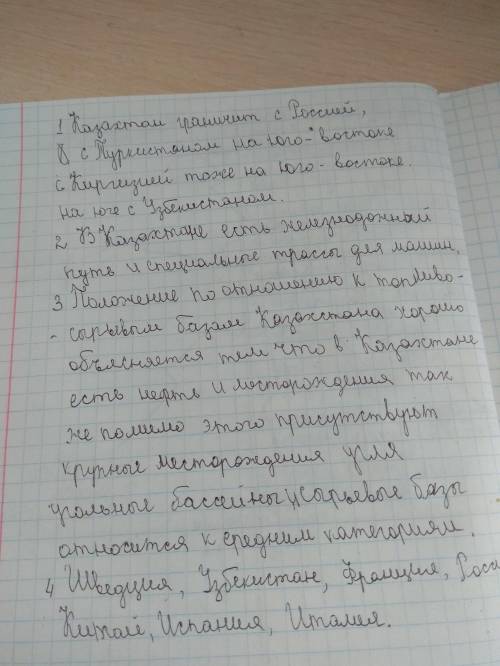 1 Казахтан граничит с Россией,
с Туркистаном на юго-востоке
с Киргизией тоже на юго-востоке.
на юге с Узбекистаном.
2 В Казахтане есть железнодожный
путь и специальные трассы для машин.
3 Положение по отношению к топливо-
- сырьевым базам Казахстана хорошо
объясняется тем что в Казахстане
есть нефть и месторождения так
же помимо этого присутствуют
крупные месторождения угля
угольные бассейны, сырьевые базы
относится к средним категориям.
4 Швеция, Узбекистан, Франция, Росси
Китай, Испания, Италия.